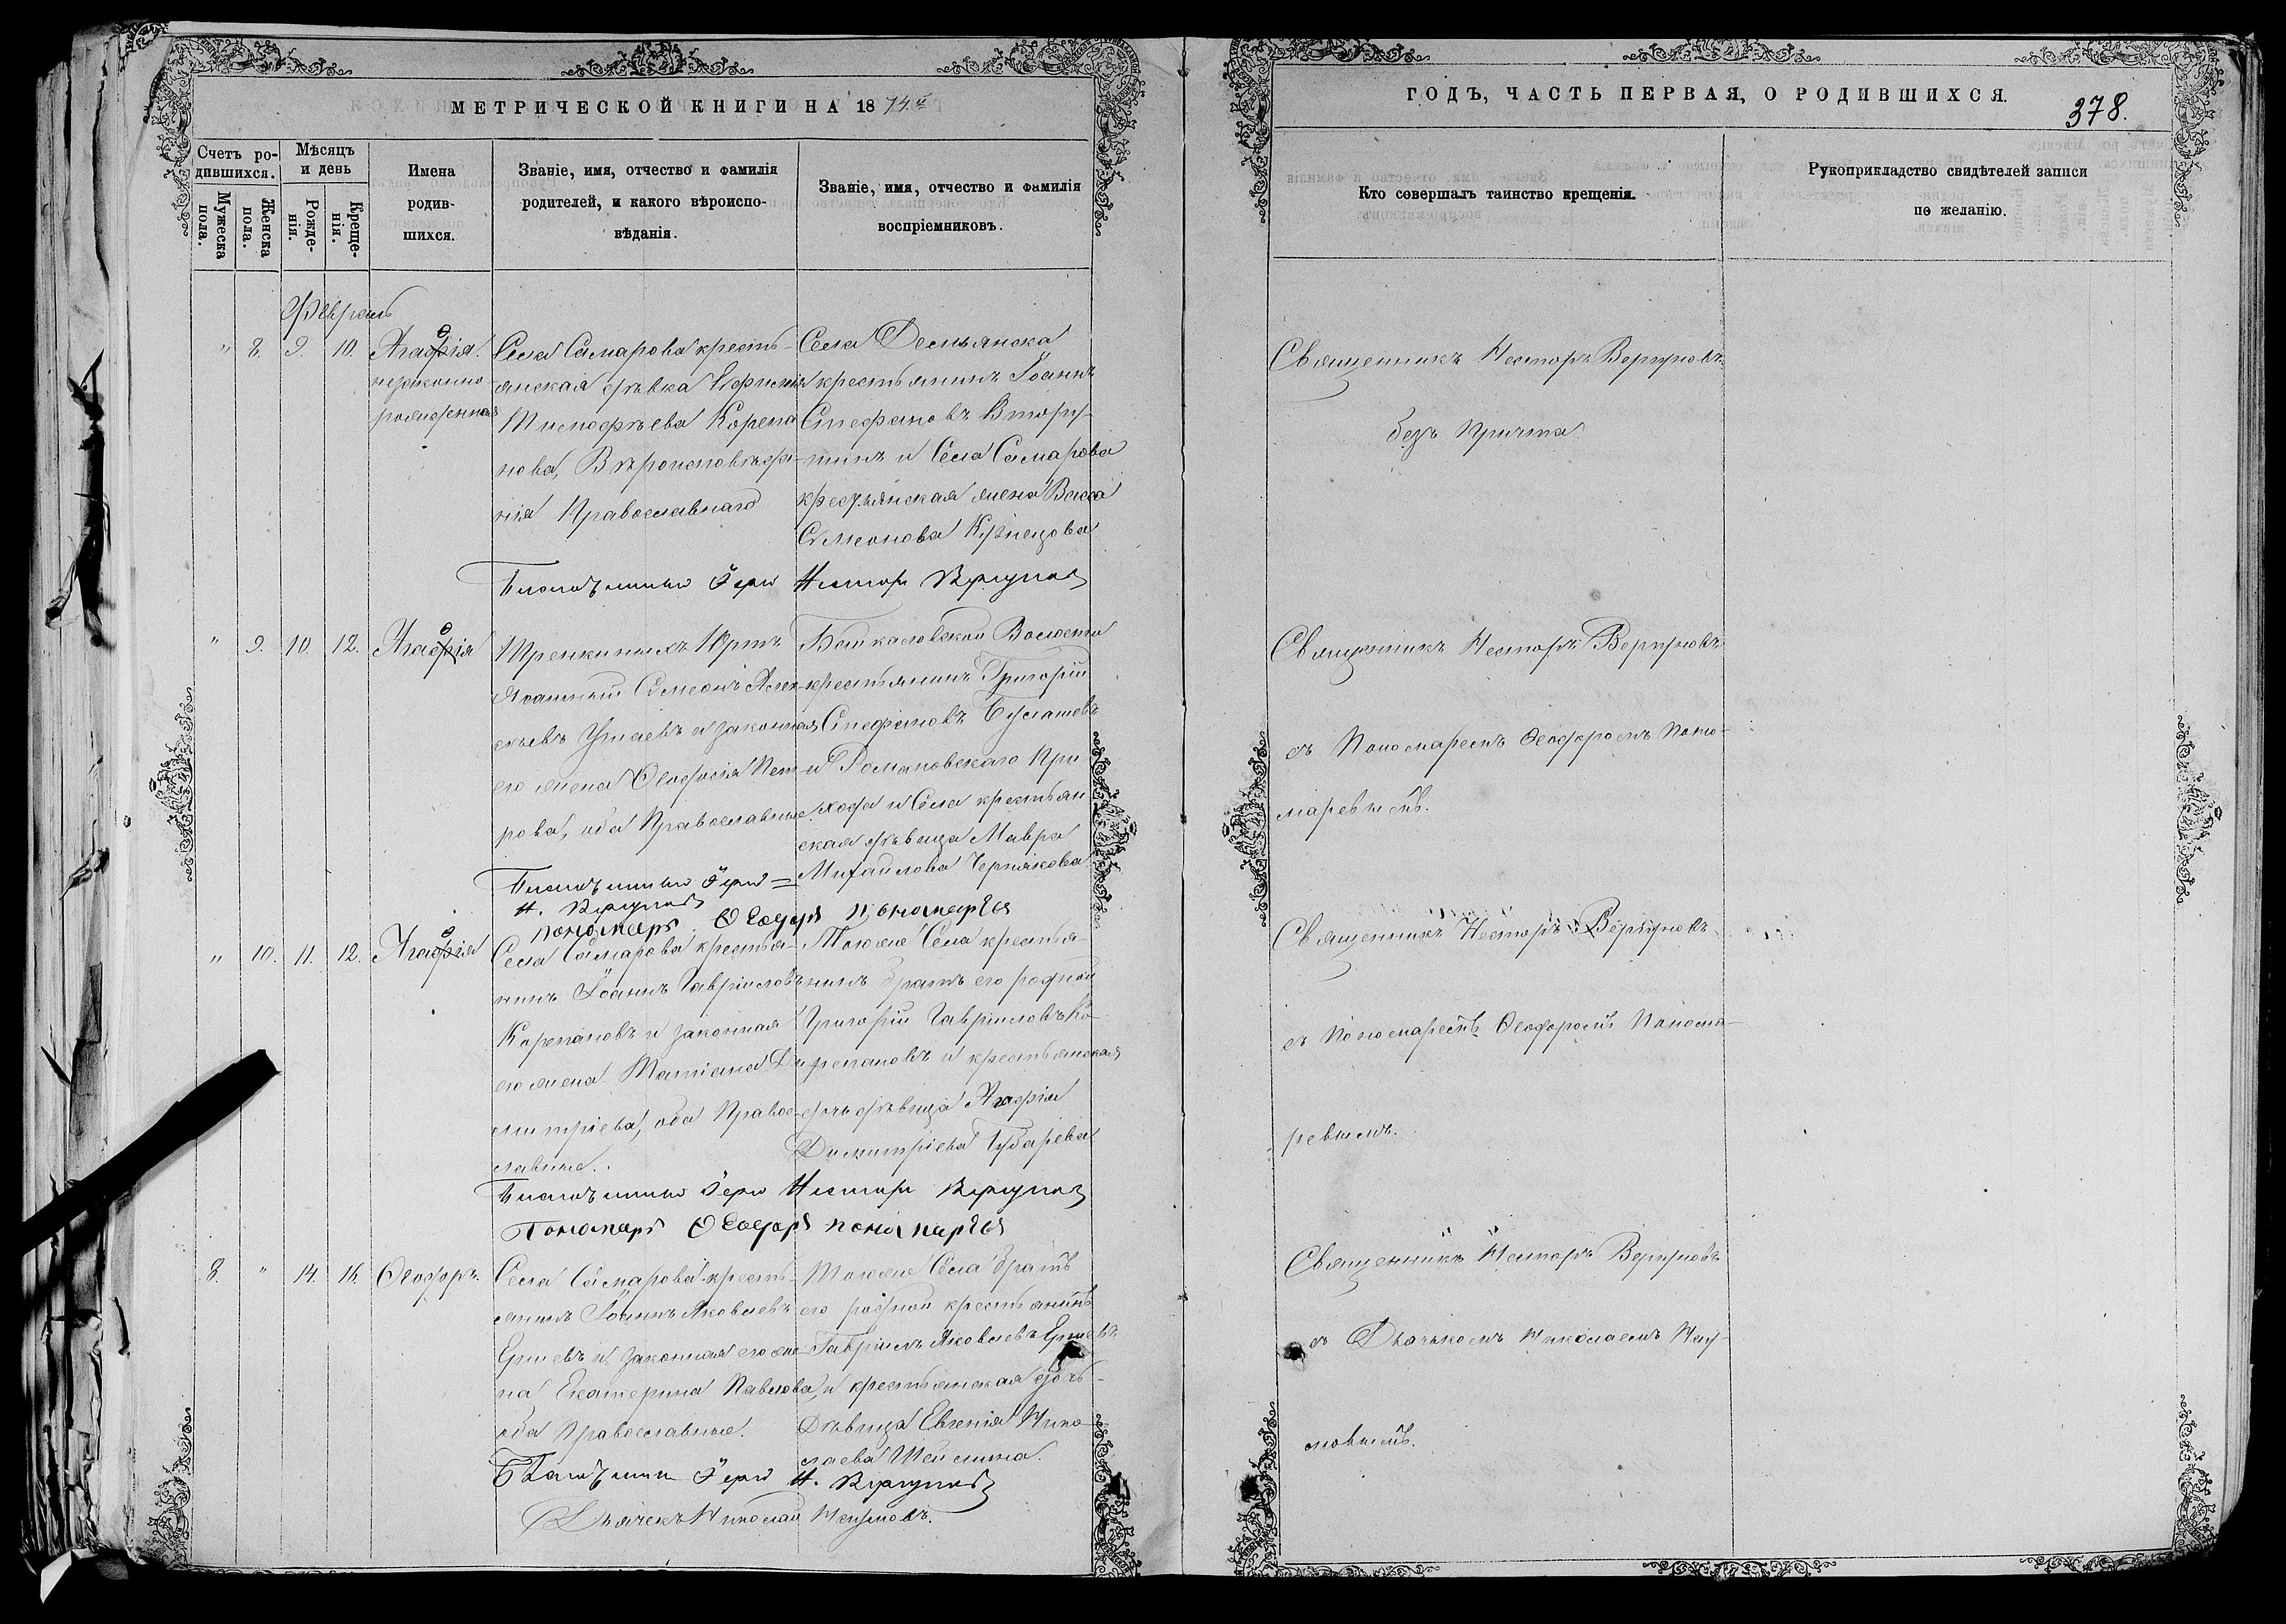 МЕТРИЧЕСКОЙ КНИГИ НА 1874й
ГОДЪ, ЧАСТЬ ПЕРВАЯ, О РОДИВШИХСЯ.
378.
Счетъ ро-
дившихся.
Мужеска пола.
Женска пола.
Мѣсяцъ
и день
Рожде-
нія.
Креще-
нія.
Имена
родив-
шихся.
Званіе, имя, отчество и фамилія
родителей, и какого вѣроиспо-
вѣданія.
Званіе, имя, отчество и фамилія
воспріемниковъ.
Кто совершалъ таинство крещенія.
Рукоприкладство свидѣтелей записи
по желанію.
Февраль
" 8. 9. 10. Агаѳія
незаконно
рожденная
Села Самарова кресть-
янская дѣвка Евфимія
Тимоѳѣева Корепа
нова, Вѣроисповѣда-
нія Православнаго
Села Демьянска
крестьянинъ Іоаннъ
Стефановъ Втору-
шинъ и Села Самарова
крестьянская жена Васса
Симеонова Кузнецова
Священникъ Несторъ Вергуновъ
безъ причта.
Благочинный Іерей Несторъ Вергуновъ
" 9. 10. 12. Агаѳія
Юртъ
Ясашный Симеонъ Алек-
ѣевъ и законная
его жена Ѳеодосія Пет-
рова, оба Православные.
Волости
крестьянинъ Григорій
Стефановъ
и Романовскаго При
хода и Села крестьян
ская дѣвица Мавра
Михайлова Чернякова
Священникъ Несторъ Вергуновъ
съ Пономаремъ Ѳеодоромъ Поно-
маревымъ.
Благочинный Іерей =
Н. Вергуновъ
пономарь Ѳеодоръ пономаревъ
" 10. 11. 12. Агаѳія
Села Самарова крестья-
нинъ Іоаннъ Гавріиловъ
Корепановъ и законная
его жена Татіана Ди
митріева, оба Правос-
лавные.
Тоюже Села крестья-
нинъ братъ его родной
Григорій Гавріиловъ Ко-
репановъ и крестьянская
дочь дѣвица Агафія
Димитріева Губарева
Священникъ Несторъ Вергуновъ
съ Пономаремъ Ѳеодоромъ Понома-
ревымъ.
Благочинный Іерей Несторъ Вергуновъ
Пономарь Ѳеодоръ пономаревъ
8. " 14. 16. Ѳеодоръ.
Села Самарова кресть-
янинъ Іоаннъ Яковлевъ
Ершевъ и законная его же-
на Екатерина Павлова,
оба Православные.
Тоюже Села братъ
его родной крестьянинъ
Гавріилъ Яковлевъ Ершевъ
и крестьянская дочь
Дѣвица Евгенія Нико-
лаева Шеймина.
Священникъ Несторъ Вергуновъ
съ Дьячькомъ Николаемъ
новымъ.
Благочинный Іерей Н. Вергуновъ
Дьячекъ Николай